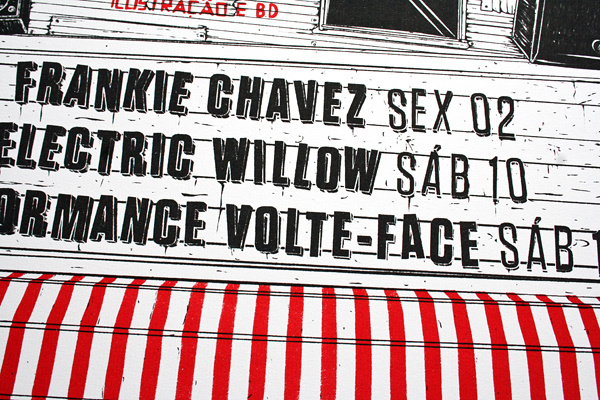 ILUSTRAÇÃO E BD
FRANKIE CHAVEZ SEX 02
ELECTRIC WILLOW SÁB 10
ORMANCE VOLTE-FACE SÁB